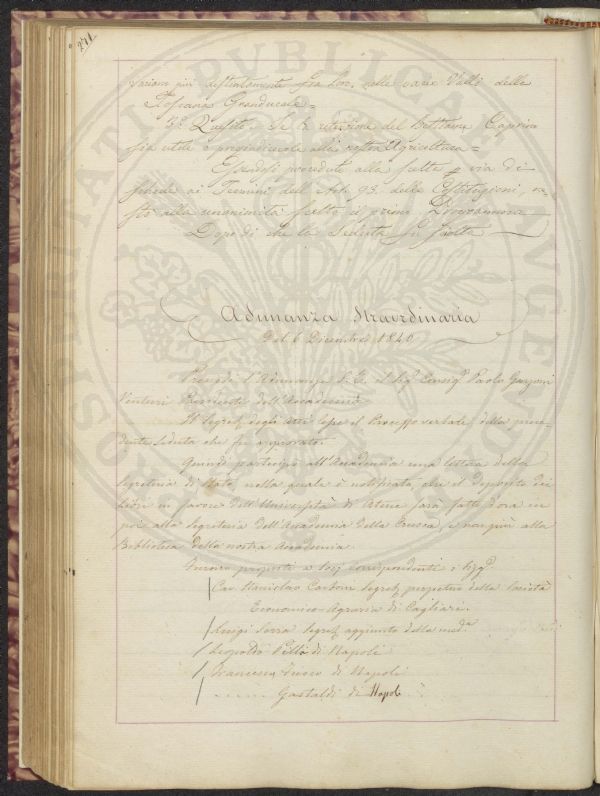 271.
più distintamente fra loro, nelle varie Valli della
Toscana Granducale =
3.° Quesito. Se la del Bestiame Caprino
sia utile o pregiudicevole alla nostra Agricoltura =
Essendosi proceduto alla scelta per via di
ai Termini dell' Art: 93. delle Costituzioni,
alla unanimità scelto il primo Programma
Dopo di che la Seduta fu sciolta
Adunanza Straordinaria
Del 6 Dicembre 1840
Presiede l'Adunanza S. E. il Sig.r Consig.r Paolo Garzoni
Venturi Presidente dell'Accademia
Il Segret.o degli Atti lesse il Processo verbale della prece-
dente Seduta che fu approvato.
Quindi partecipò all'Accademia una lettera della
Segreteria di Stato, nella quale è notificato, che il deposito dei
Libri in favore dell'Università di Atene sarà fatto d'ora in
poi alla Segreteria dell'Accademia della Crusca, e non più alla
Biblioteca della nostra Accademia.
Furono proposti a Soci Corrispondenti i Sigg.ri
Cav. Stanislao Cadoni Segret.o perpetuo della Società
Economico-Agraria di Cagliari.
Luigi Serra Segret.o aggiunto della med.a
Leopoldo Pilla di Napoli
Francesco di Napoli
....... Gastaldi di Napoli
PUBLICAE
AUGENDAE
PROSPERITATI